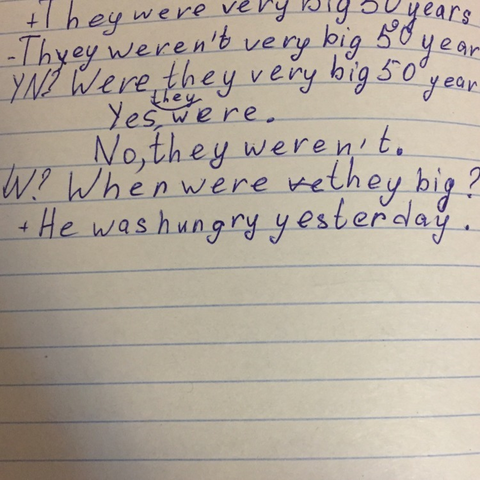 +They were very big 50 years
-Thyey weren't very big 50 year
YN? Were they very big 50 year
Yes, they were.
No, they weren't.
W? When were they big?
+He was hungry yesterday.